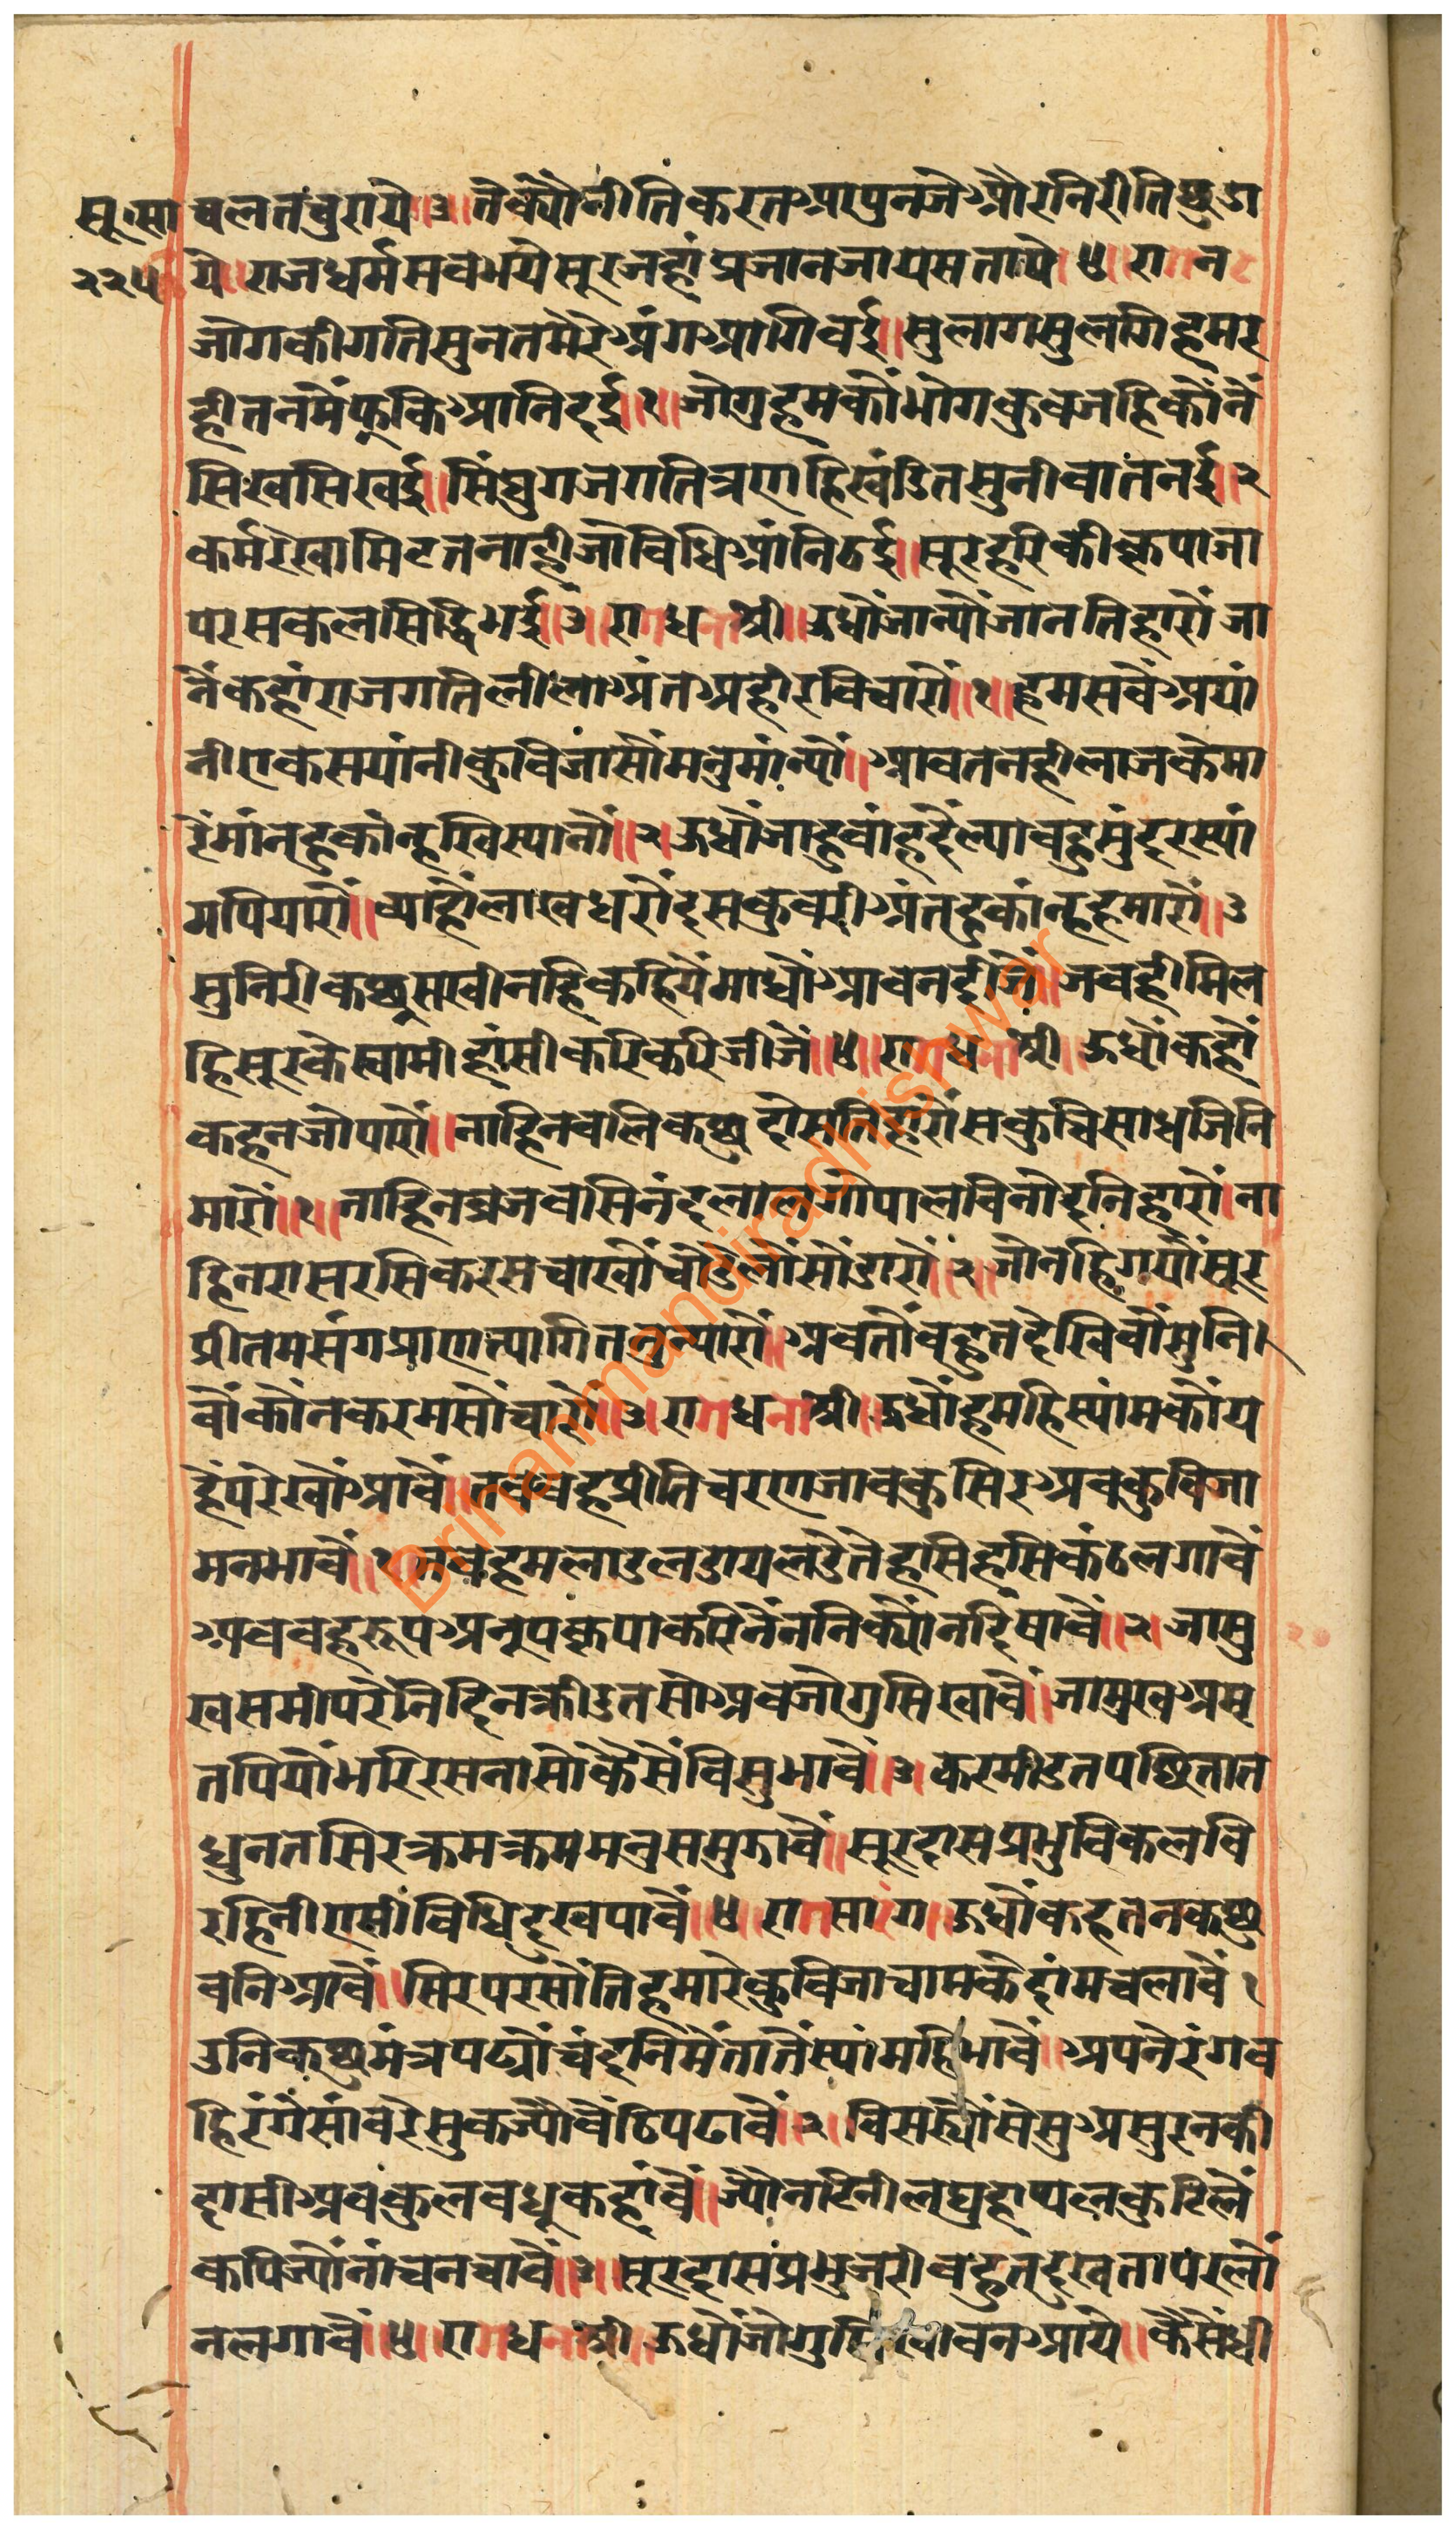 सू॰सा
२२५
चलतचुराये॥३॥तैक्यौनीतिकरतआपुनजेऔरनिरीतिछुडा
ये॥राजधर्मसबभयेसूरजहांप्रजानजायसताये॥४॥रागन
जोगकीगतिसुनतमेरेअंगआगिबई॥सुलगिसुलगिहमर
हीतनमैंफूकिआनिदई॥१॥जोगुहमकौंभोगकुबजहिकौंनैं
सिखसिखई॥सिंघुगजगतित्रणहिखंडितसुनीबातनई॥२
कर्मरेखामिटतनाहीजोबिधिआंनिठई॥सूरहरिकीकृपाजा
परसकलसिद्धिभई॥३॥रागधनाश्री॥ऊधौंजान्यौंजानतिहारौंजा
नैंकहांराजगतिलीलाअंतअहीरबिचारौं॥१॥हमसबैंअयां
नीएकसयांनीकुबिजासौंमनुमांन्यौं॥आवतनहीलाजकेमा
रैंमांनहुकांन्हखिस्यानौं॥२॥ऊधौंजाहुबांहदैल्यावहुसुंदरस्यां
मपियारौं॥ब्याहौलाखधरौंदसकुबरीअंतहुकांन्हहमारौं॥३
सुनिरीकछूसखीनहिकहियैंमाधौंआवनदीजैं॥जबहीमिल
हिसूरकेस्वामीहांसीकरिकरिजीजैं॥४॥रागधनाश्री॥ऊधौंकहौं
कहनजोपारौं॥नाहिनबलिकछुदोसतिहारौंसकुचिसाधजिनि
मारौं॥१॥नाहिनब्रजबसिनंदलालगोपालबिनोदनिहारौं॥ना
हिनरासरसिकरसचाखौंचोडलौंसोंडारौं॥२॥जोनहिगयौंसूर
प्रीतमसंगप्राणत्यागितनुन्यारौं॥अबतौंबहुतदेखिबौंसुनि
बौंकौंनकरमसौंचारौं॥३॥रागधनाश्री॥ऊधौंहमहिस्यांमकौंय
हैंपरेखौंआवैं॥तबवहप्रीतिचरणजावकुसिरअबकुबिजा
मनभावैं॥१॥तबहमलाडलडायलडैतेहासिहासिकंठलगावैं
अबवहरूपअनूपकृपाकरिनैंननिक्यौंनदिषावैं॥२॥जामु
खसमीपरैनिदिनक्रीडतसोअबजोगुसिखावैं॥जामुखअमृ
तपियौंभरिरसनासोकैसैंबिसुभावैं॥३॥करमीडतपछितात
धुनतसिरक्रमक्रममनुसमुझावैं॥सूरदासप्रभुबिकलबि
रहिनीएसीबिधिदुखपावैं॥४॥रागसारंग॥ऊधौंकहतनकछु
बनिआवैं॥सिरपरसौंतिहमारेकुबिजाचामकेदांमचलावैं१
उनिकछुमंत्रपढ्यौंचंदनिमैंतातैंस्यांमहिभावैं॥अपनेरंगव
हिरंगेसांवरेसुकज्यौंबैठिपढावैं॥२॥बिसर्ह्यौंसेसुअसुरनकी
दासीअबकुलबधूकहांवैं॥ज्यौंनटिनीलघुदापलकुटिलैं
कपिज्यौंनांचनचावैं॥३॥सूरदासप्रभुजरीबहुतदुखतापरलौं
नलगावैं॥४॥रागधनाश्री॥ऊधौंजोगुसिखावनआये॥कैसेंधी